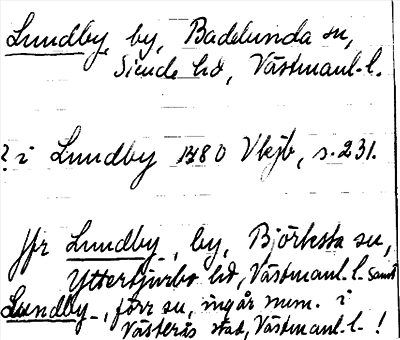 Lundby, by, Badelunda sn,
Siende hd, Västmanl. l.
? i Lundby 1480 Vbjb, s. 231.
Jfr Lundby, by, Björksta sn,
Yttertjurbo hd, Västmanl. l. samt
Lundby, förr sn, ingår num. i
Västerås stad, Västmanl. l. !